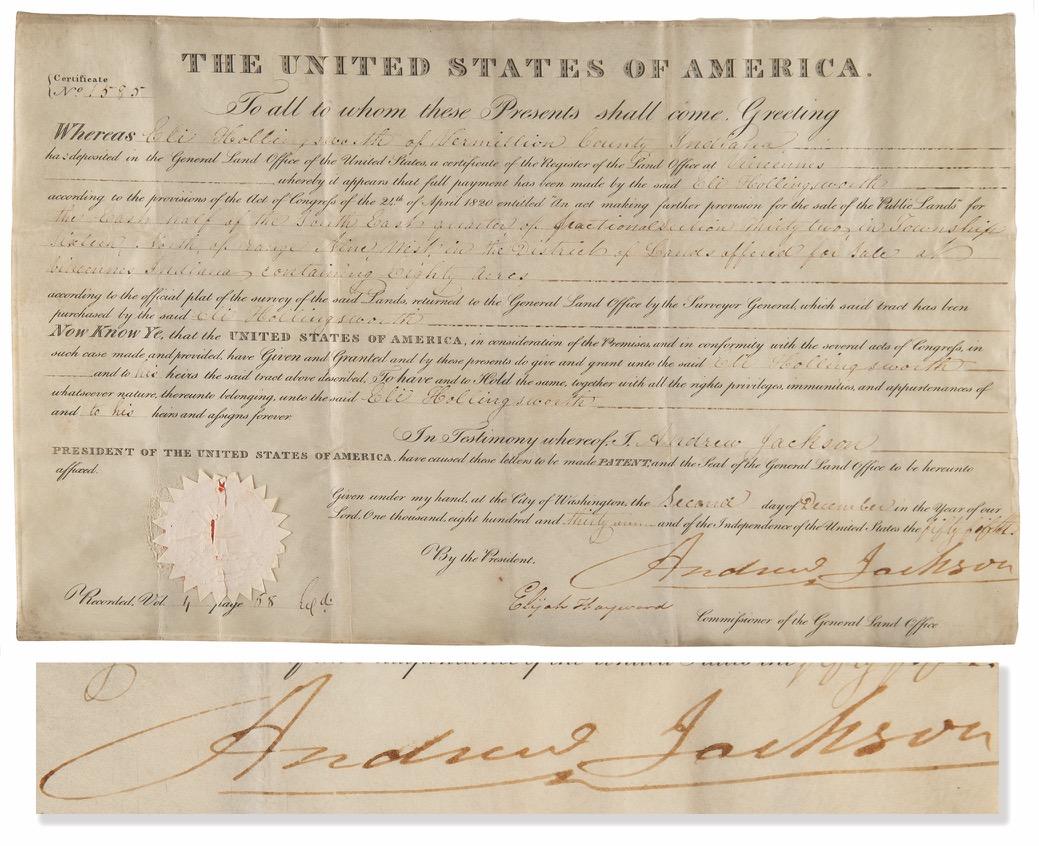 THE UNITED STATES OF AMERICA.
Certificate
No. 1595
To all to whom these Presents shall come, Greeting
Whereas Eli Hollingsworth of Vermillion County Indiana
has deposited in the General Land Office of the United States, a certificate of the Register of the Land Office at Vincennes
whereby it appears that full payment has been made by the said Eli Hollingsworth
according to the provisions of the Act of Congress of the 24th of April 1820 entitled "An act making further provision for the sale of the Public Lands" for
the East half of the South East quarter of fractional Section thirty two, in Township
sixteen, North, of range Nine, West, in the District of Lands offered for Sale at
Vincennes Indiana, containing Eighty acres
according to the official plat of the survey of the said Lands, returned to the General Land Office by the Surveyor General, which said tract has been
purchased by the said Eli Hollingsworth
Now Know Ye, that the UNITED STATES OF AMERICA, in consideration of the Premises, and in conformity with the several acts of Congress, in
such case made and provided, have Given and Granted and by these presents do give and grant unto the said Eli Hollingsworth
and to his heirs the said tract above described, To have and to Hold the same, together with all the rights privileges, immunities, and appurtenances of
whatsoever nature, thereunto belonging, unto the said Eli Hollingsworth
and to his heirs and assigns forever
In Testimony whereof, I, Andrew Jackson
PRESIDENT OF THE UNITED STATES OF AMERICA, have caused these letters to be made PATENT, and the Seal of the General Land Office to be hereunto
affixed.
Given under my hand, at the City of Washington, the Second day of December in the Year of our
Lord, One thousand, eight hundred and thirty and of the Independence of the United States the fifty fifth.
By the President.
Andrew Jackson
Recorded, Vol 4 page 58
Elijah Hayward
Commissioner of the General Land Office
Andrew Jackson